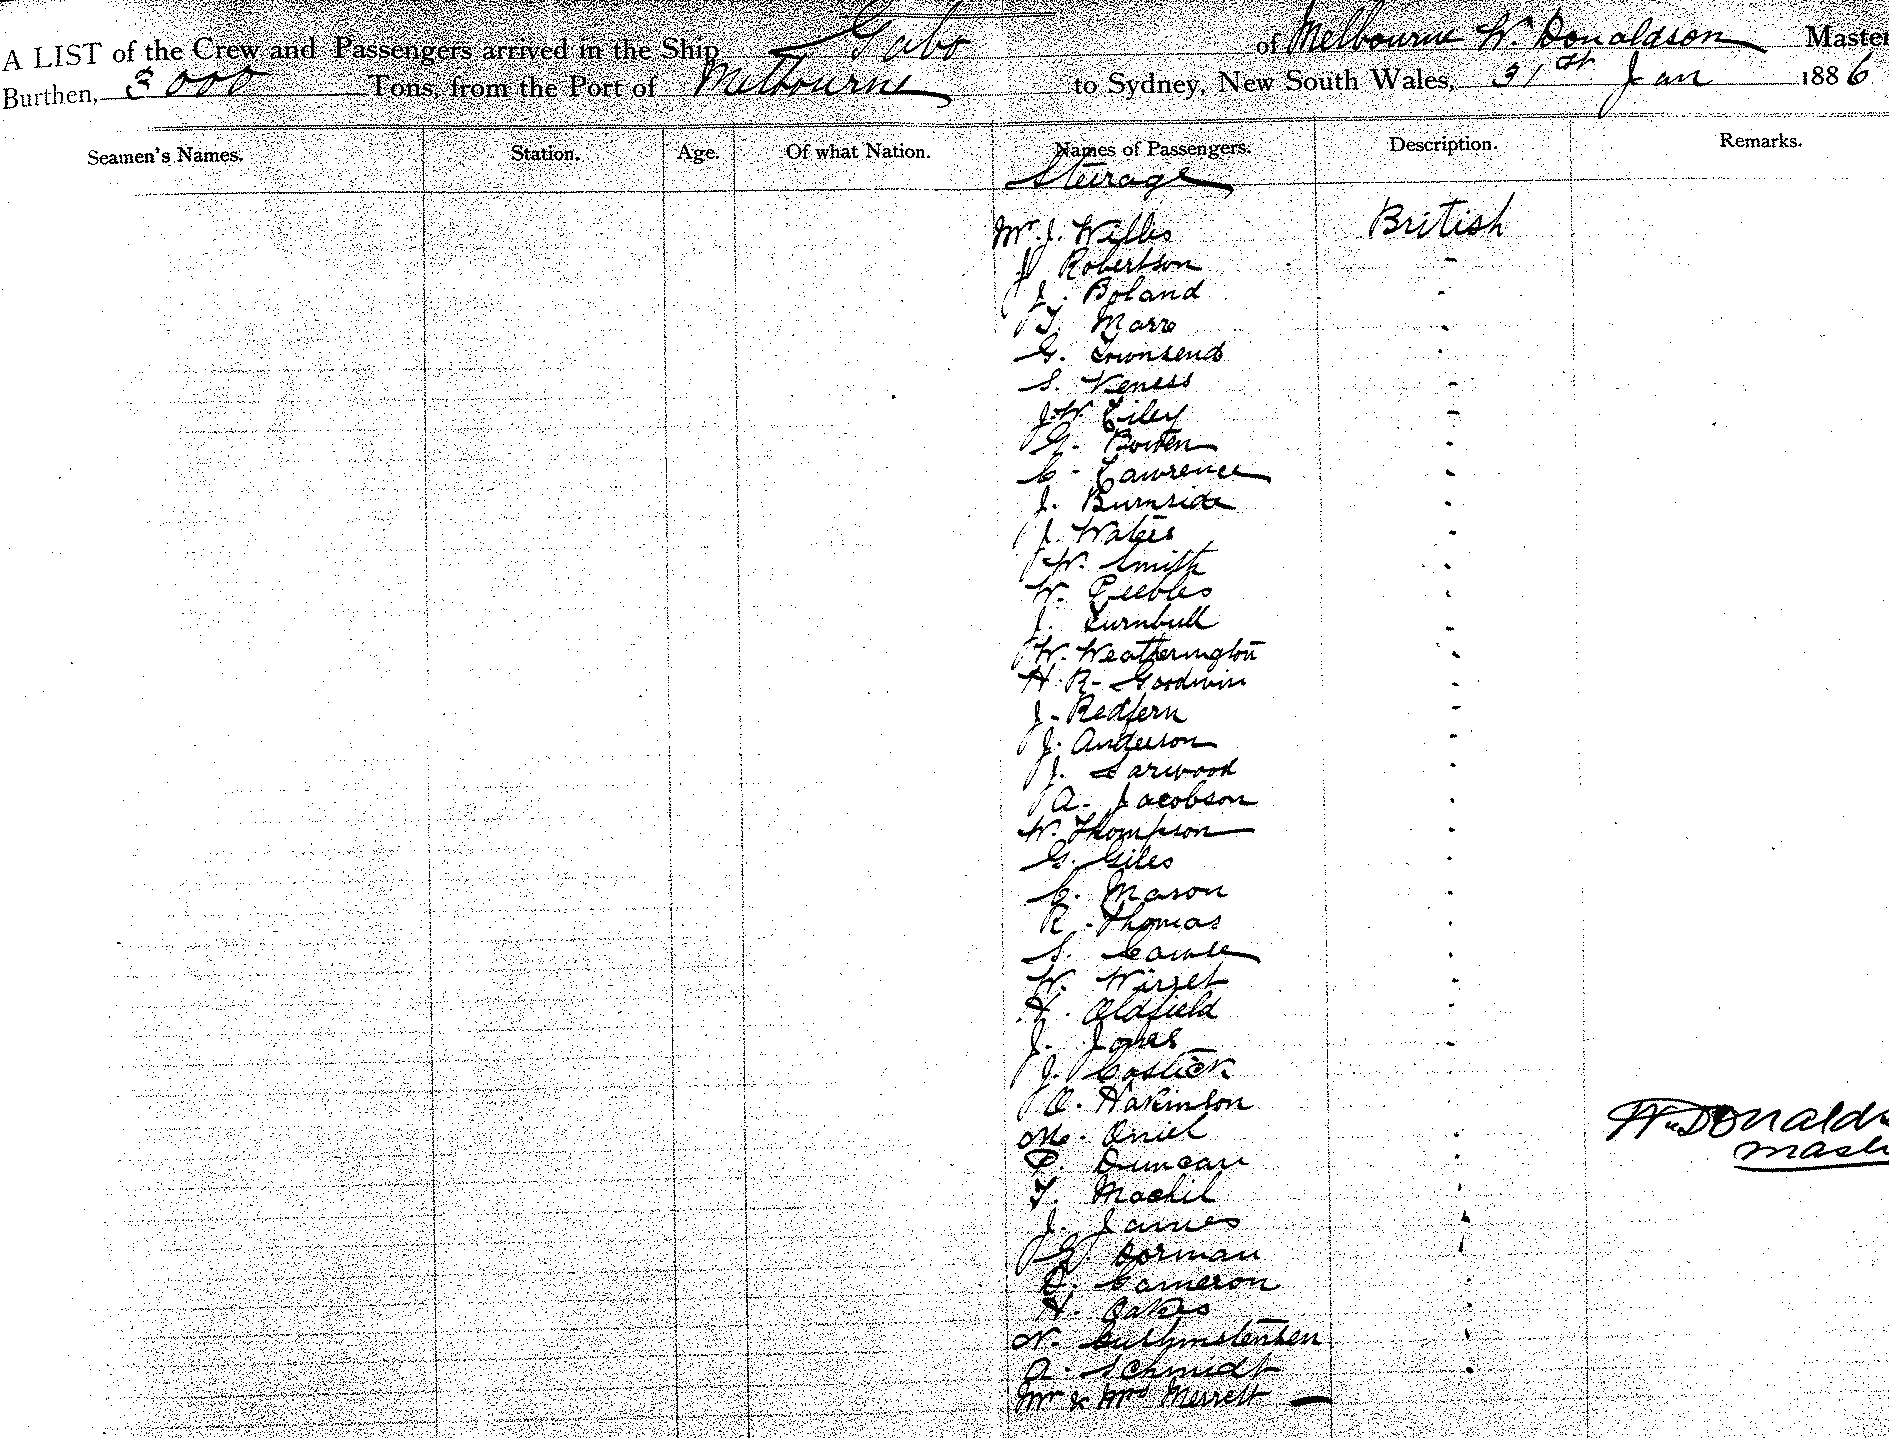 A LIST of the Crew and Passengers arrived in the Ship Gabo of Melbourne W. Donaldson Master
Burthen, 3000 Tons, from the Port of Melbourne to Sydney, New South Wales, 31st Jan 1886
Seamen's Names. Station. Age. Of what Nation. Names of Passengers. Description. Remarks.
Steirage
Mr. J. Willis British
J Robertson
J. Boland
T. Marro
G. Townsend
S. Veness
J. W. Eiley
G. Bowen
C. Lawrence
J. Burnside
J. Waters
W. Smith
W. Peebles
J. Turnbull
W. Weatherington
H. R. Goodwin
J. Redfern
J. Anderson
J. Sarwood
A. Jacobson
W. Thompson
G. Giles
C. Mason
R. Thomas
S.
W.
H. Oldfield
J. Jones
J. Costick
O. Hakinson
M. Oniel
P. Duncan
T. Machil
J. James
G. Dorman
D. Cameron
H. Oakes
N.
A. Schmidt
Mr & Mrs Merrett
W. Donalds
Mast